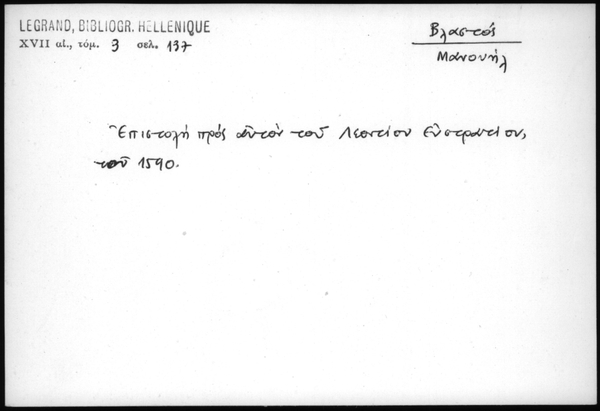 LEGRAND, BIBLIOGR. HELLENIQUE
XVII αἰ., τόμ. 3 σελ. 137
Βλαστός
Μανουήλ
Ἐπιστολή πρός αὐτόν τοῦ Λεοντίου Εὐστρατίου,
τοῦ 1590.